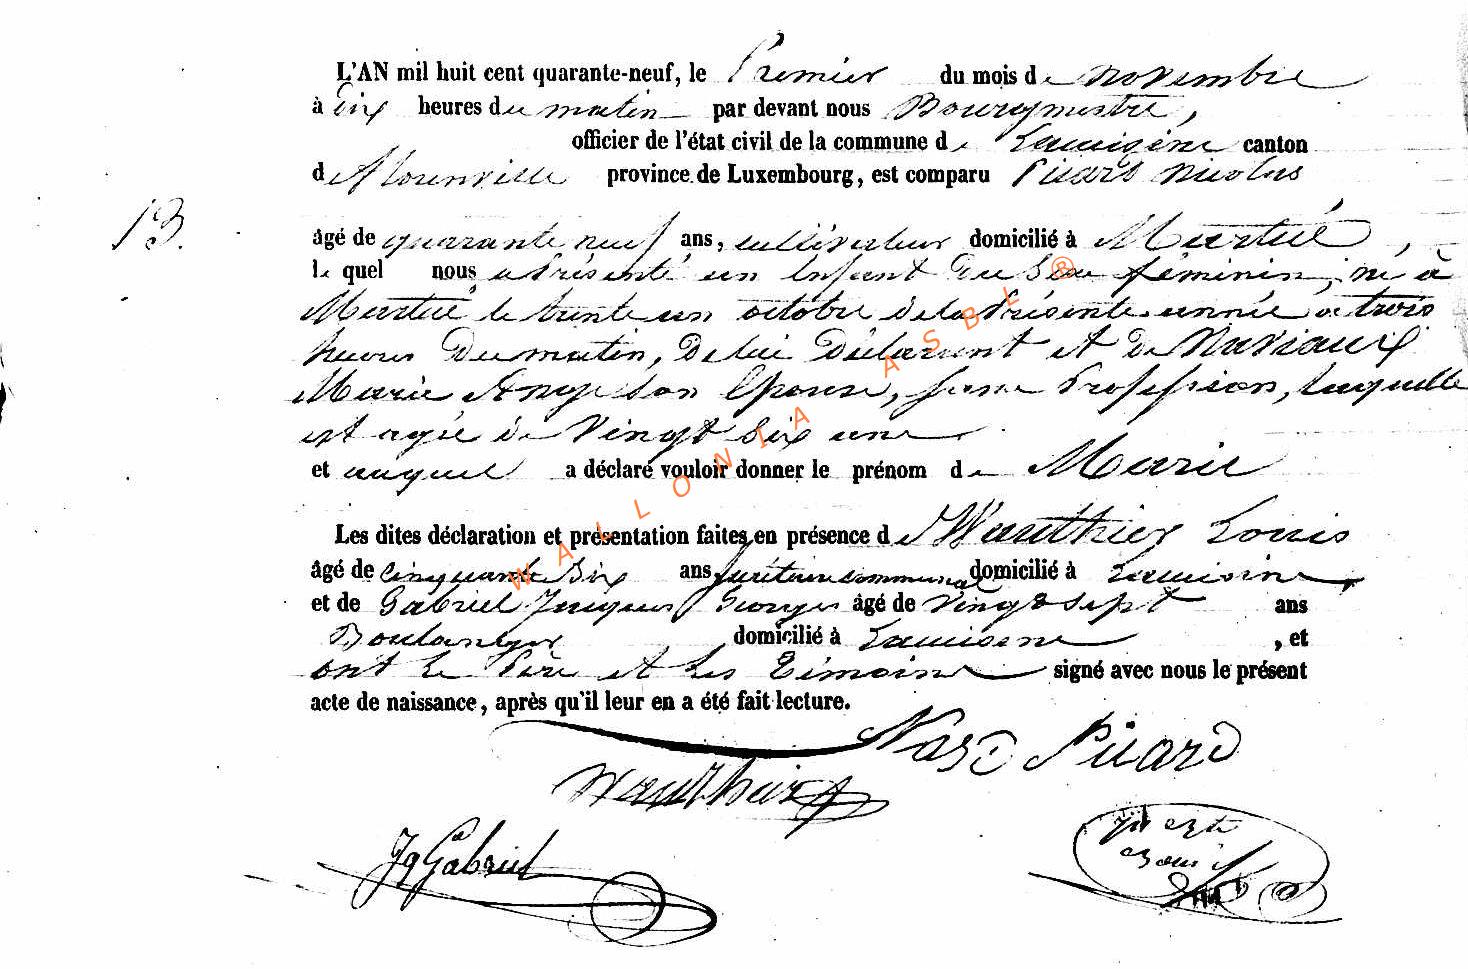 L'AN mil huit cent quarante-neuf, le Premier du mois de novembre
à Dix heures du matin par devant nous Bourgmestre,
officier de l'état civil de la commune de Lacuisine canton
de florenville province de Luxembourg, est comparu Pierard Nicolas
13.
âgé de quarante neuf ans, cultivateur domicilié à Martué,
le quel nous a Présenté un Enfant du Sexe féminin, né à
Martué le trente un octobre de la Présente année a trois
heures Du matin, De lui Déclarant et de Naviaux
Marie Ange son Epouse, sans Profession, laquelle
est agée de Vingt six ans
et auquel a déclaré vouloir donner le prénom de Marie
Les dites déclaration et présentation faites en présence de Wauthier Louis
âgé de Cinquante Six ans, secrétaire communal domicilié à Lacuisine
et de Gabriel Jacques Georges âgé de Vingt sept ans
Boulanger domicilié à Lacuisine, et
ont le Père et les Témoins signé avec nous le présent
acte de naissance, après qu'il leur en a été fait lecture.
Wauthier
Jq Gabriel
WALLONIA ASBL ®